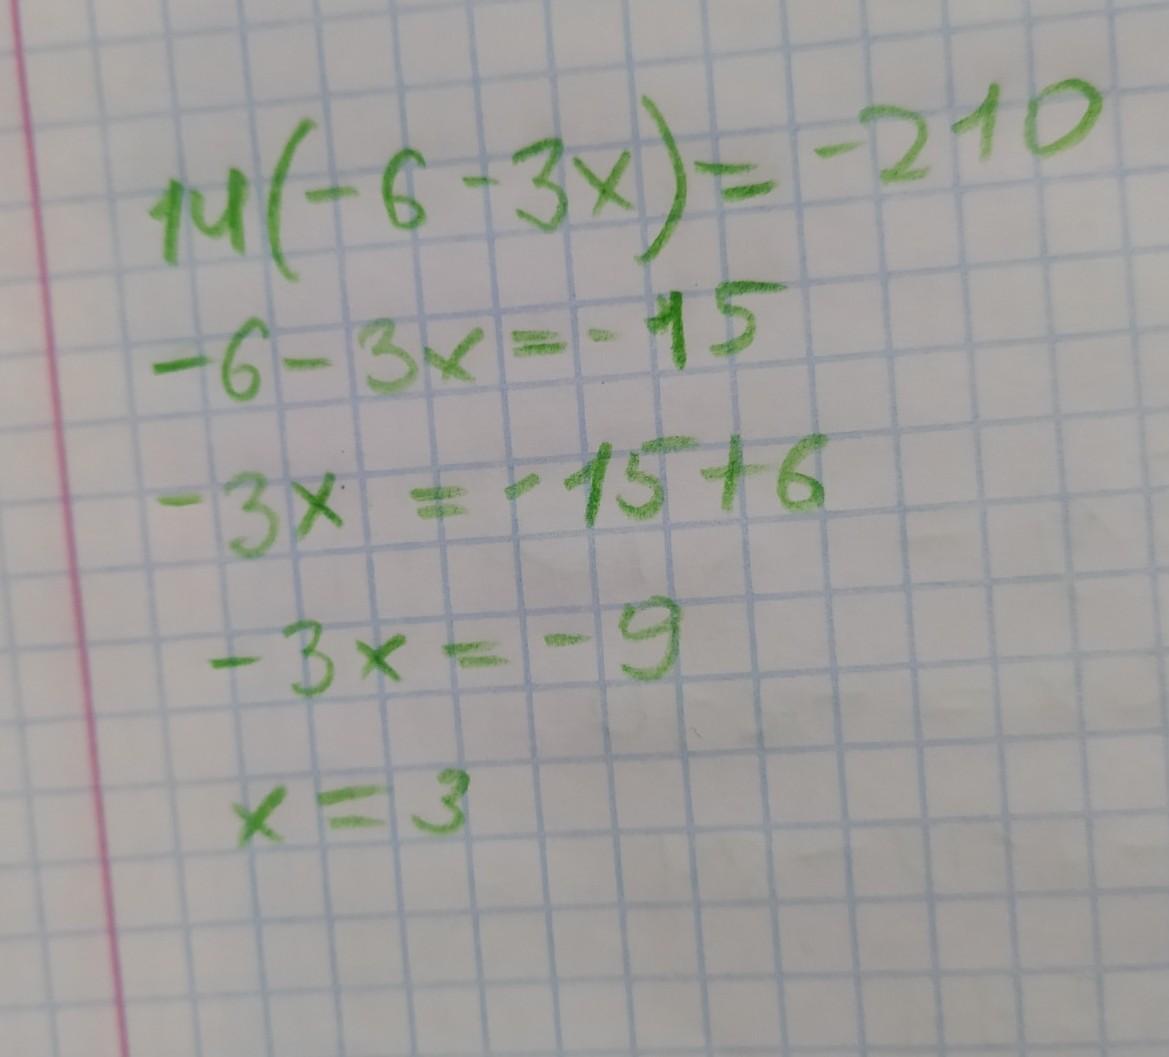 14(-6-3x)=-210
-6-3x=-15
-3x=-15+6
-3x=-9
x=3